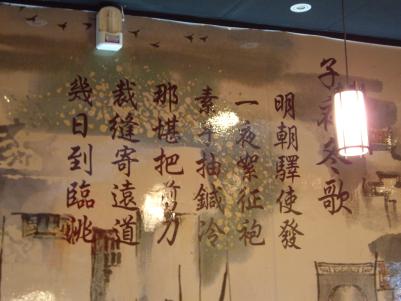 子夜冬歌
明朝驛使發
一夜絮征袍
素手抽鍼冷
那堪把剪刀
裁縫寄遠道
幾日到臨洮